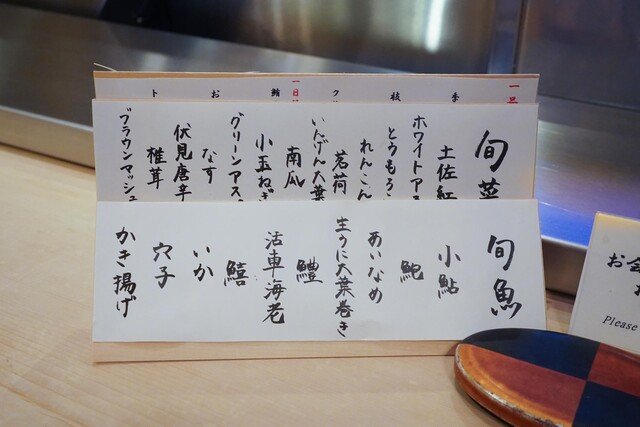 一
季
枝
ク
一日
鮪
お
ト
旬菜
土佐紅
ホワイトアス
とうもろこ
れんこん
茗荷
いんげん大葉
南瓜
小玉ねぎ
グリーンアス
なす
伏見唐辛
椎茸
ブラウンマッシュ
旬魚
小鮎
鮑
あいなめ
生うに大葉巻き
鱧
活車海老
鱚
いか
穴子
かき揚げ
お会
Please